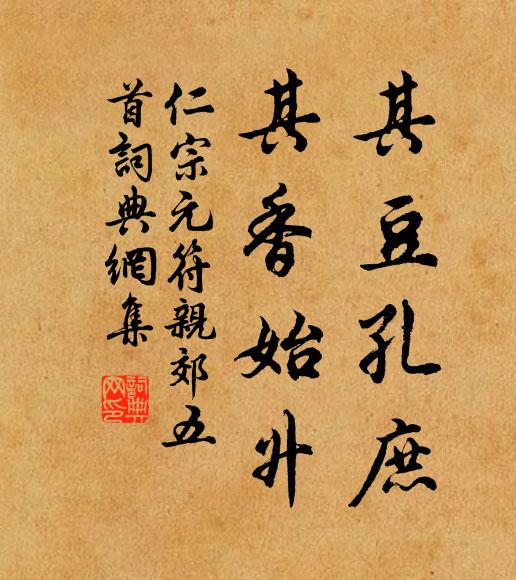 其豆孔庶
其香始升
仁宗元符親郊五
首詞典網集
詞典网印